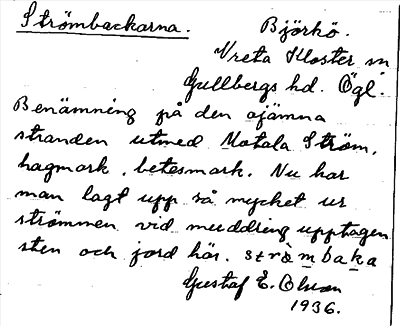 Strömbackarna.
Björkö.
Vreta Kloster sn
Gullbergs hd. Ögl.
Benämning på den ojämna
stranden utmed Motala Ström,
hagmark, betesmark. Nu har
man lagt upp så mycket ur
strömmen vid muddring upptagen
sten och jord här. stròmbaka
Gustaf E. Olson
1936.